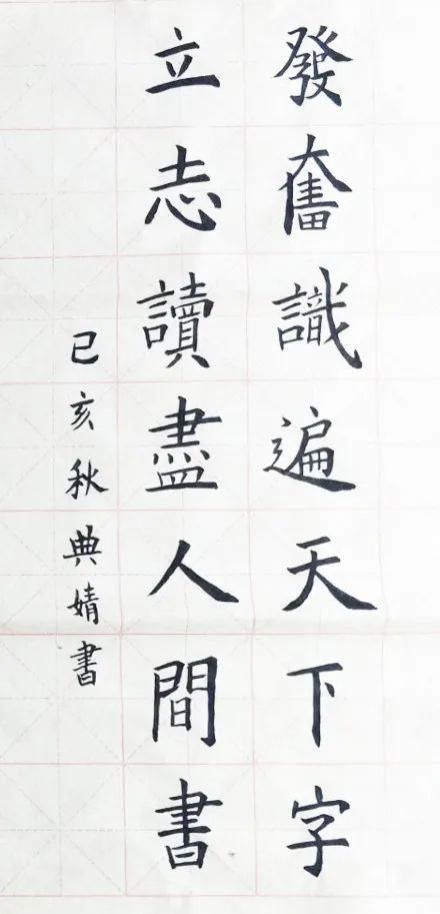 發奮識遍天下字
立志讀盡人間書
己亥秋典婧書